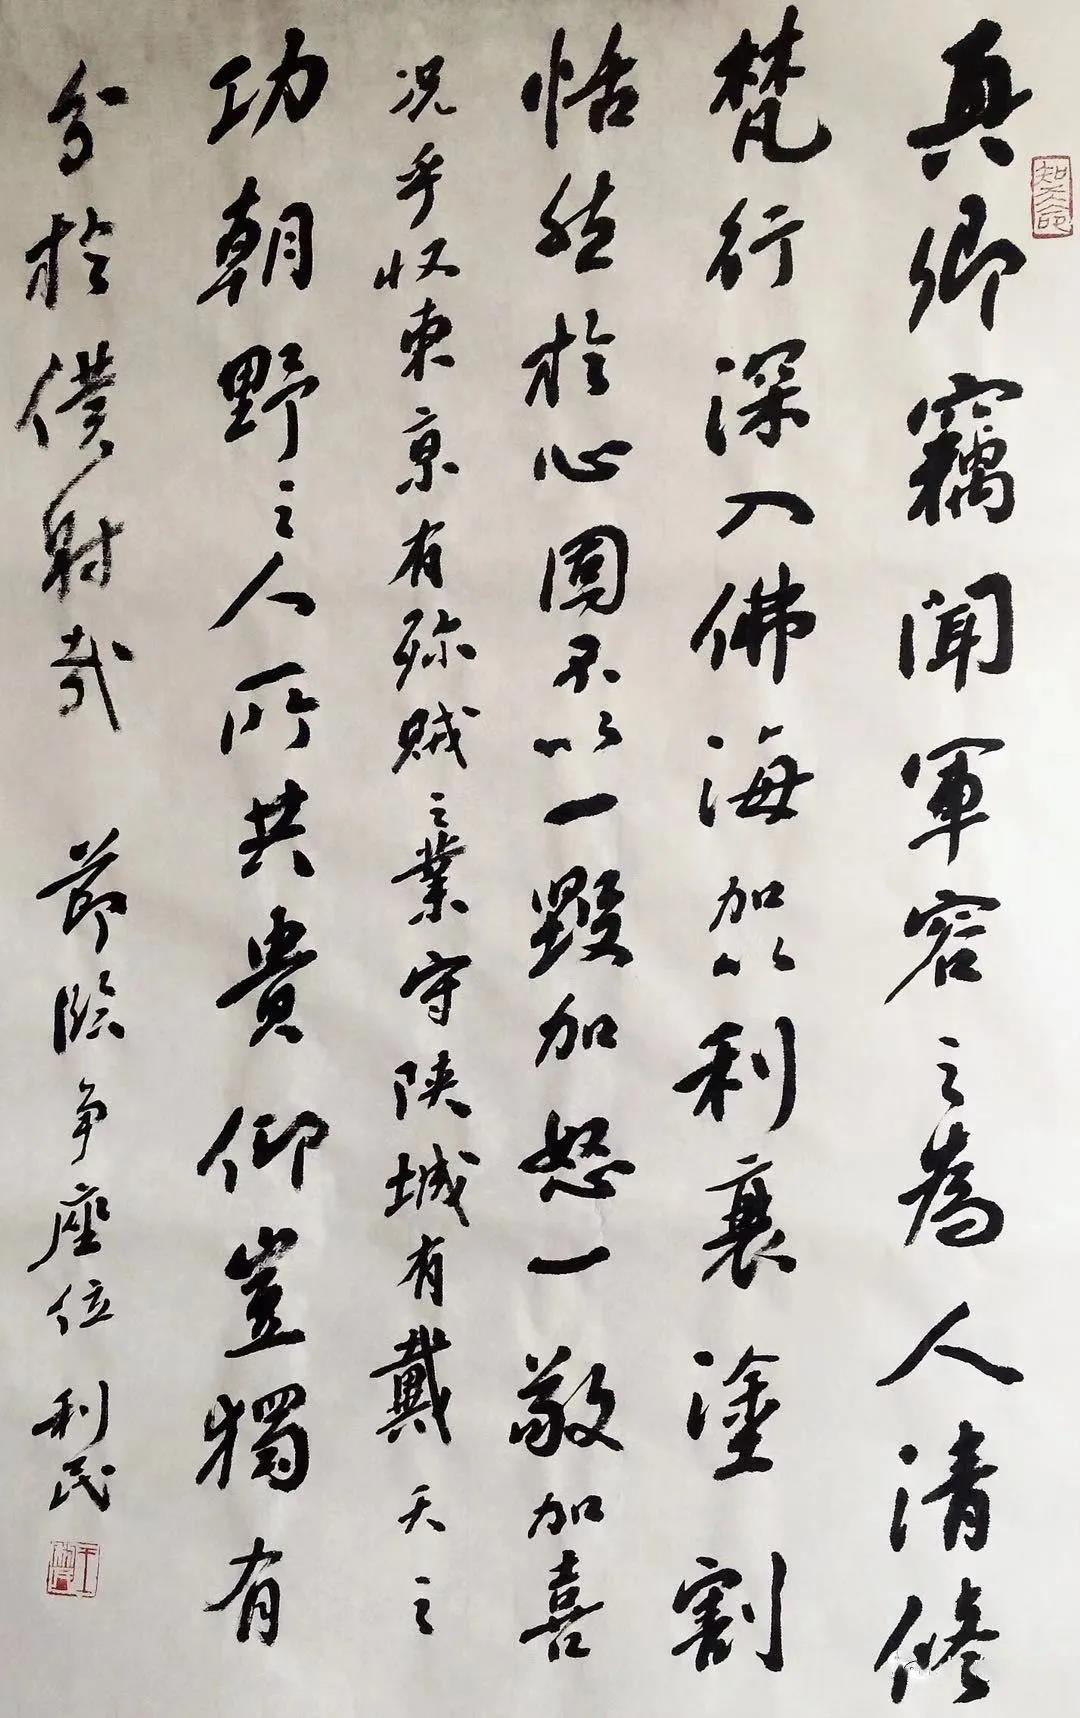 真卿竊聞軍容之為人清修
梵行深入佛海加以利衰塗割
恬然於心固不以一毀加怒一敬加喜
况乎收東京有殄賊之業守陝城有戴天之
功朝野之人所共貴仰豈獨有
分於僕射哉 節臨争座位 利民
知天命